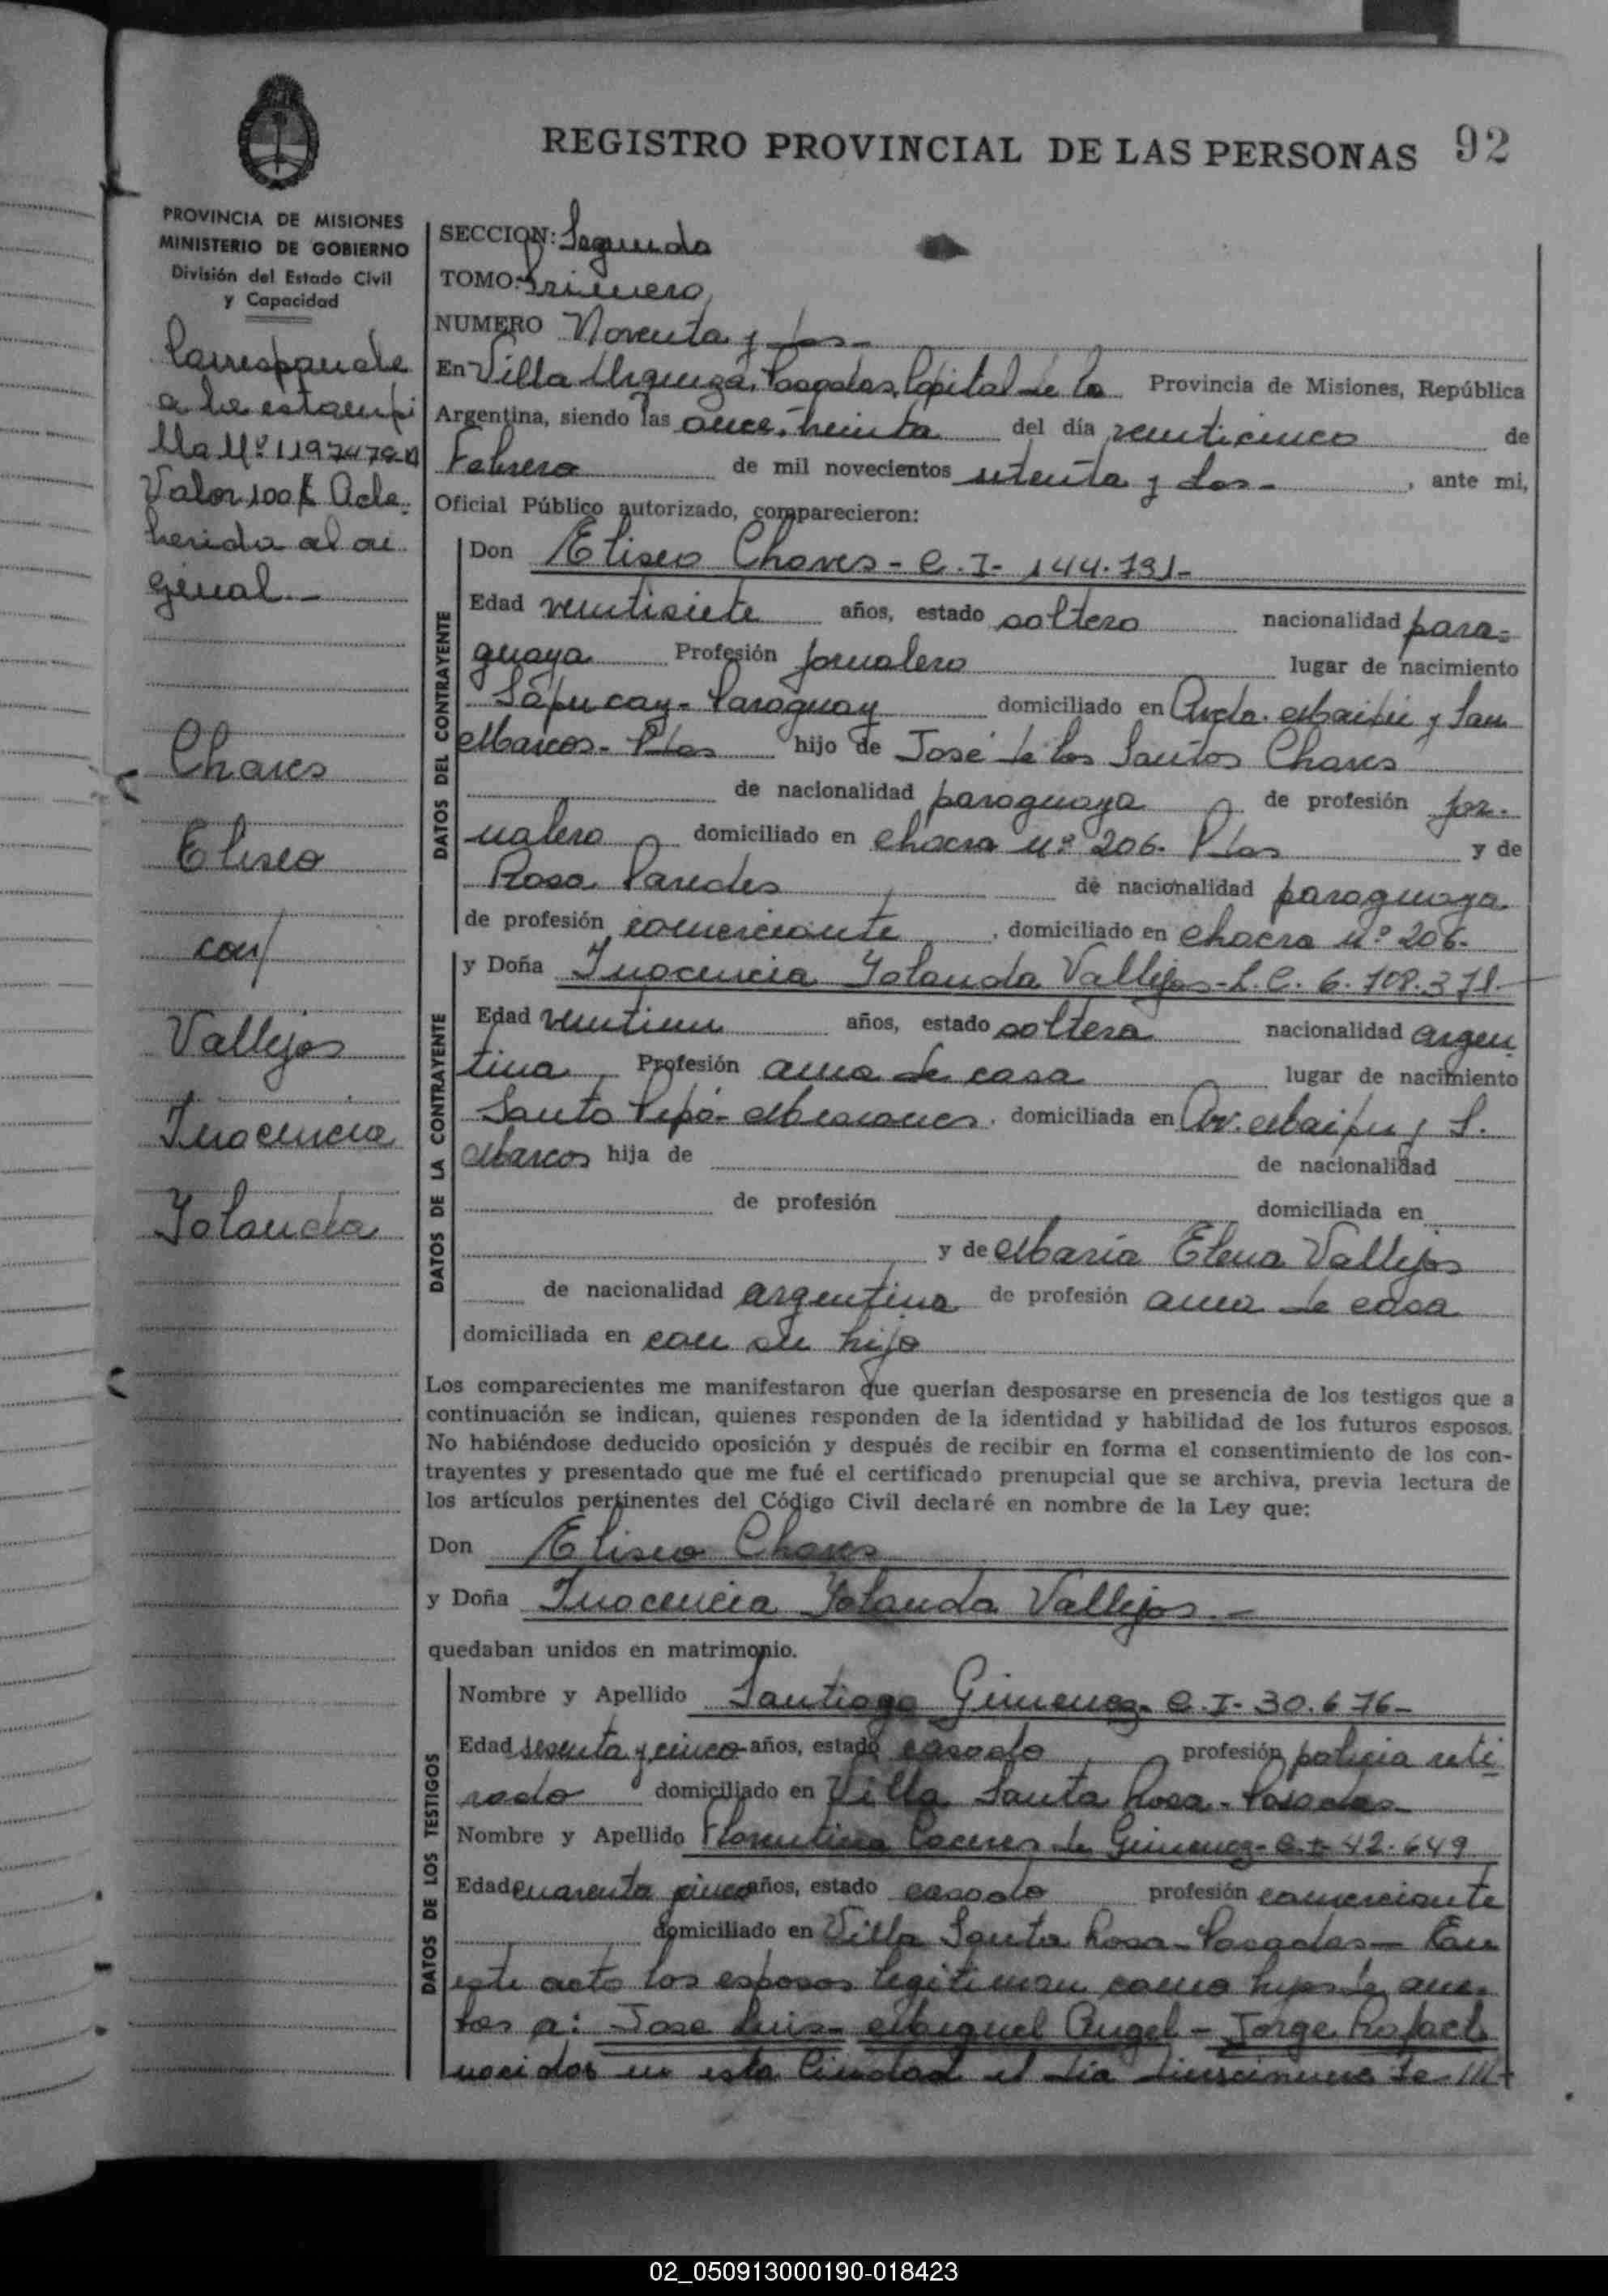 REGISTRO PROVINCIAL DE LAS PERSONAS 92
PROVINCIA DE MISIONES
MINISTERIO DE GOBIERNO
División del Estado Civil
y Capacidad
Corresponde
a la estampi
lla Nº 1197479
Valor 100 $ Ade.
herida al ori
ginal.-
Chaves
Eliseo
con/
Vallejos
Inocencia
Yolanda
SECCION: Segunda
TOMO: Primero
NUMERO Noventa y dos-
En Villa Urquiza, Posadas, Capital de la Provincia de Misiones, República
Argentina, siendo las once, treinta del día veinticinco de
Febrero de mil novecientos setenta y dos- , ante mi,
Oficial Público autorizado, comparecieron:
DATOS DEL CONTRAYENTE
Don Eliseo Chaves - C.I- 144.731-
Edad veintisiete años, estado soltero nacionalidad para-
guaya Profesión jornalero lugar de nacimiento
Sapucay- Paraguay domiciliado en Avda. Maipú y San
Marcos- Pdas hijo de José de los Santos Chaves
de nacionalidad paraguaya de profesión jor-
nalero domiciliado en chacra nº 206- Pdas y de
Rosa Paredes de nacionalidad paraguaya
de profesión comerciante , domiciliado en chacra nº 206-
DATOS DE LA CONTRAYENTE
y Doña Inocencia Yolanda Vallejos- L.C. 6.708.371.-
Edad veintiun años, estado soltera nacionalidad argen
tina Profesión ama de casa lugar de nacimiento
Santo Pipó- Misiones, domiciliada en Av. Maipú y S.
Marcos hija de de nacionalidad
de profesión domiciliada en
y de María Elena Vallejos
de nacionalidad argentina de profesión ama de casa
domiciliada en con su hijo
Los comparecientes me manifestaron que querían desposarse en presencia de los testigos que a
continuación se indican, quienes responden de la identidad y habilidad de los futuros esposos.
No habiéndose deducido oposición y después de recibir en forma el consentimiento de los con-
trayentes y presentado que me fué el certificado prenupcial que se archiva, previa lectura de
los artículos pertinentes del Código Civil declaré en nombre de la Ley que:
Don Eliseo Chaves
y Doña Inocencia Yolanda Vallejos.-
quedaban unidos en matrimonio.
DATOS DE LOS TESTIGOS
Nombre y Apellido Santiago Gimenez- C.I- 30.676-
Edad sesenta y cinco años, estado casado profesión policia reti
rado domiciliado en Villa Santa Rosa- Posadas-
Nombre y Apellido Florentina Caceres de Gimenez- C.I- 42.649
Edad cuarenta cinco años, estado casado profesión comerciante
domiciliado en Villa Santa Rosa- Posadas- En
este acto los esposos legitiman como hijos de am-
bos a: Jose Luis- Miguel Angel- Jorge Rafael
nacidos en esta Ciudad el día diecinueve de ///
02_050913000190-018423